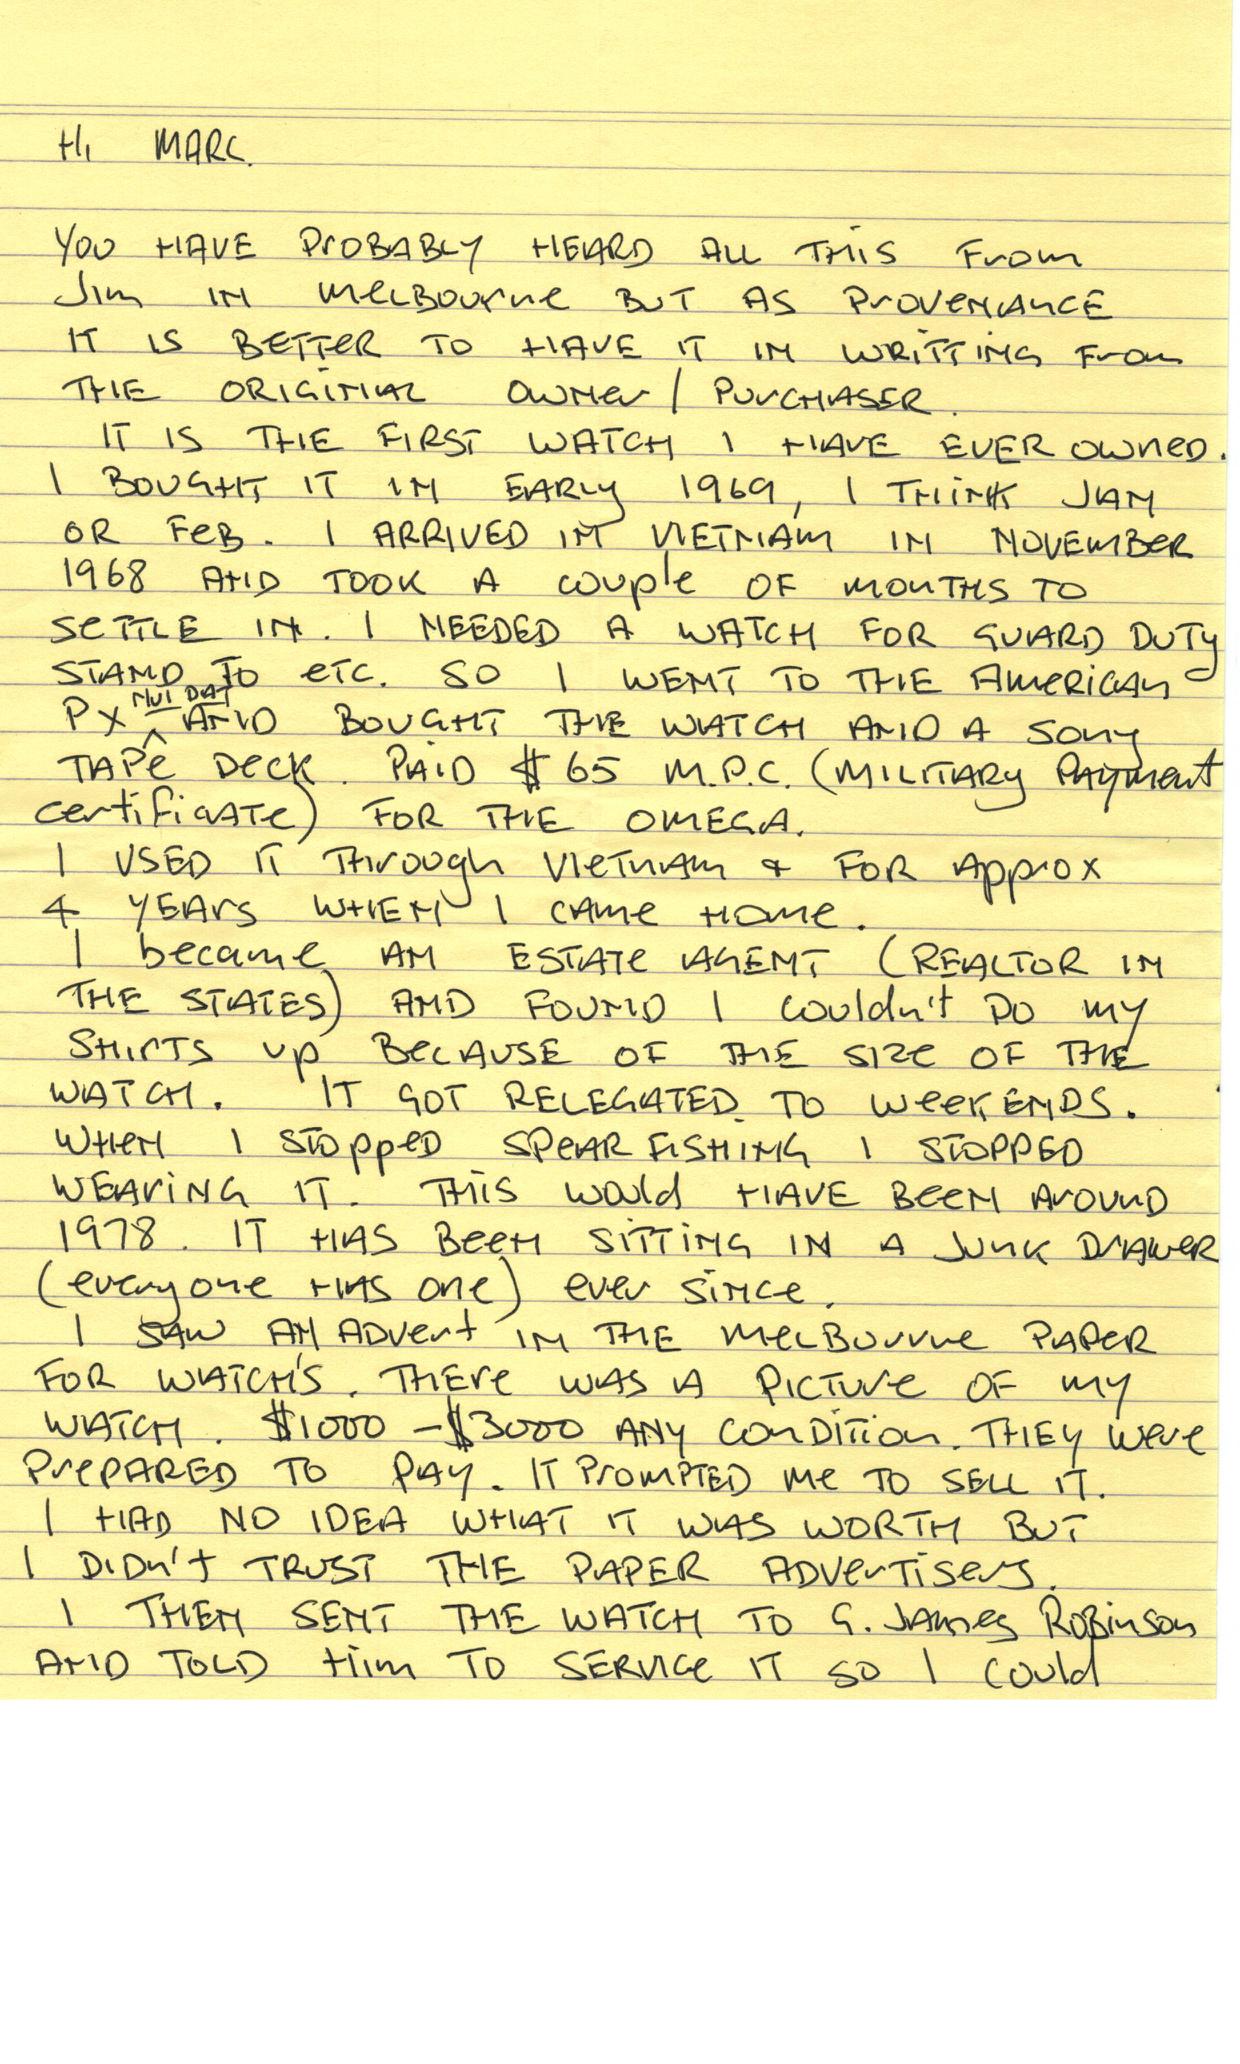 Hi MARC.
YOU HAVE PROBABLY HEARD ALL THIS From
Jim IN MELBOURNE BUT AS PROVENANCE
IT IS BETTER TO HAVE IT IN WRITTING From
THE ORIGINAL OWNER / PURCHASER.
IT IS THE FIRST WATCH I HAVE EVER OWNED.
I BOUGHT IT IN EARLY 1969, I THINK JAN
OR FEB. I ARRIVED IN VIETNAM IN NOVEMBER
1968 AND TOOK A couple OF MONTHS TO
SETTLE IN. I NEEDED A WATCH FOR GUARD DUTY
STAND TO etc. SO I WENT TO THE AMERICAN
NUI DAT
PX ^ AND BOUGHT THE WATCH AND A SONY
TAPE DECK. PAID $65 M.P.C. (MILITARY PAYMENT
certificATE) FOR THE OMEGA.
I USED IT THrough VIETNAM & FOR Approx
4 YEARS WHEN I CAME HOME.
I became AN ESTATE AGENT (REALTOR IN
THE STATES) AND FOUND I couldn't DO MY
SHIRTS up BECAUSE OF THE SIZE OF THE
WATCH. IT GOT RELEGATED TO WEEKENDS.
WHEN I STOPPED SPEAR FISHING I STOPPED
WEARING IT. THIS would HAVE BEEN AROUND
1978. IT HAS BEEN SITTING IN A JUNK DRAWER
(everyone HAS one) ever SINCE.
I SAW AN ADVERT IN THE MELBOURNE PAPER
FOR WATCH'S. THERE WAS A PICTURE OF MY
WATCH. $1000 - $3000 ANY CONDITION. THEY WERE
PREPARED TO PAY. IT PROMPTED ME TO SELL IT.
I HAD NO IDEA WHAT IT WAS WORTH BUT
I DIDN't TRUST THE PAPER ADVERTISERS.
I THEN SENT THE WATCH TO G. JAMES ROBINSON
AND TOLD Him TO SERVICE IT SO I COULD